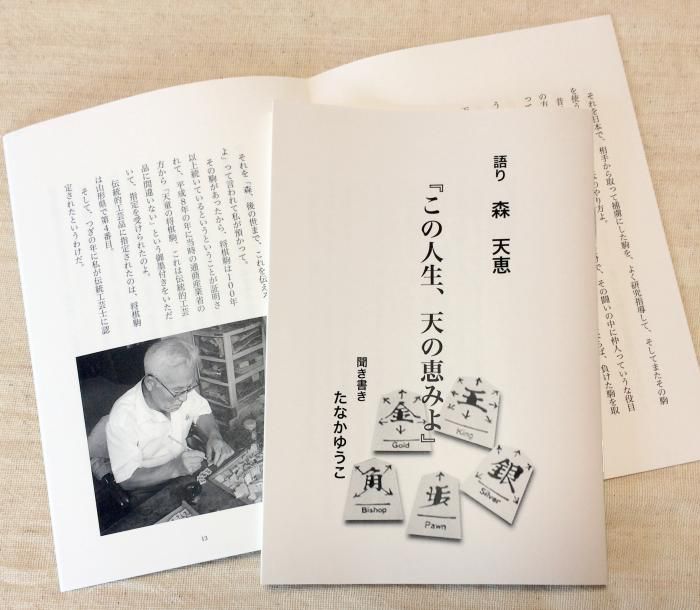 語り 森 天恵
『この人生、天の恵みよ』
聞き書き
たなかゆうこ
王
King
金
Gold
銀
Silver
角
Bishop
歩
Pawn
それを日本で、相手から取って捕虜にした駒を、よく研究指導して、そしてまたその駒
を使う のやり方よ。
昔、 で、その闘いの中に仲人っていうな役目
の方 ば、負けた駒を取
って
う
それを「森、後の世まで、これを伝え
よ」って言われて私が預かって。
その駒があったから、将棋駒は100年
以上続いているというということが証明さ
れて、平成8年の年に当時の通商産業省の
方から「天童の将棋駒、これは伝統的工芸
品に間違いない」という御墨付きをいただ
いて、指定を受けられたのよ。
伝統的工芸品に指定されたのは、将棋駒
は山形県で第4番目。
そして、つぎの年に私が伝統工芸士に認
定されたというわけだ。
13